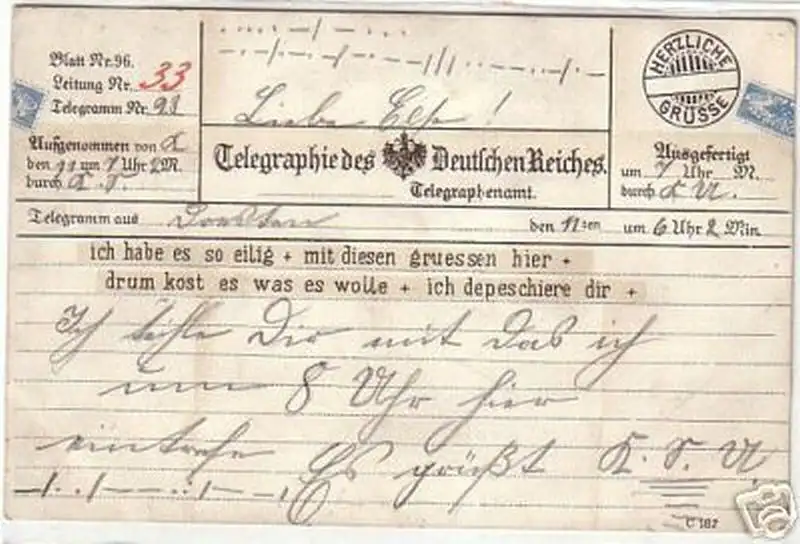 Blatt Nr. 96.
Leitung Nr. 33
Telegramm Nr. 98
Aufgenommen von K
den 11 um 7 Uhr 2 M.
durch K. S.
Liebe Else!
Telegraphie des Deutschen Reiches.
Telegraphenamt.
HERZLICHE
GRÜSSE
Ausgefertigt
um 7 Uhr M.
durch K U.
Telegramm aus den 11ten um 6 Uhr 2 Min
ich habe es so eilig + mit diesen gruessen hier +
drum kost es was es wolle + ich depeschiere dir +
Ich teile Dir mit das ich
um 8 Uhr hier
eintrefe Es grüßt K. S. U.
C 182